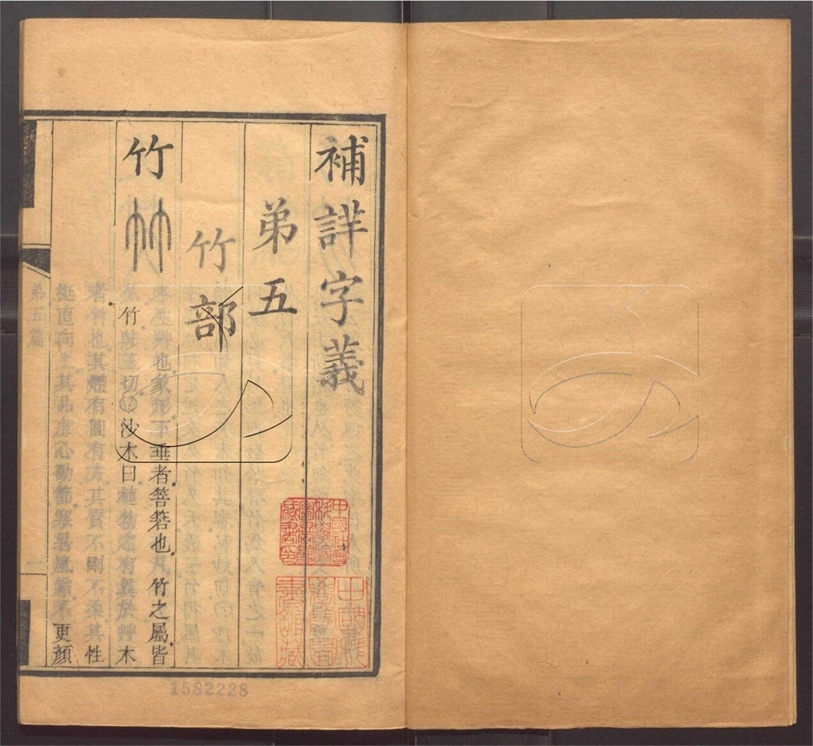 補詳字義
弟五
竹部
竹
也象形下垂者箁箬也凡竹之屬皆
竹陟玉切〇沙木曰植物之有異於艸木
者竹也其體有圓有方其質不剛不柔其性
挺直向上其品虛心勁節寒暑風霜不更顏
弟五篇
1582228